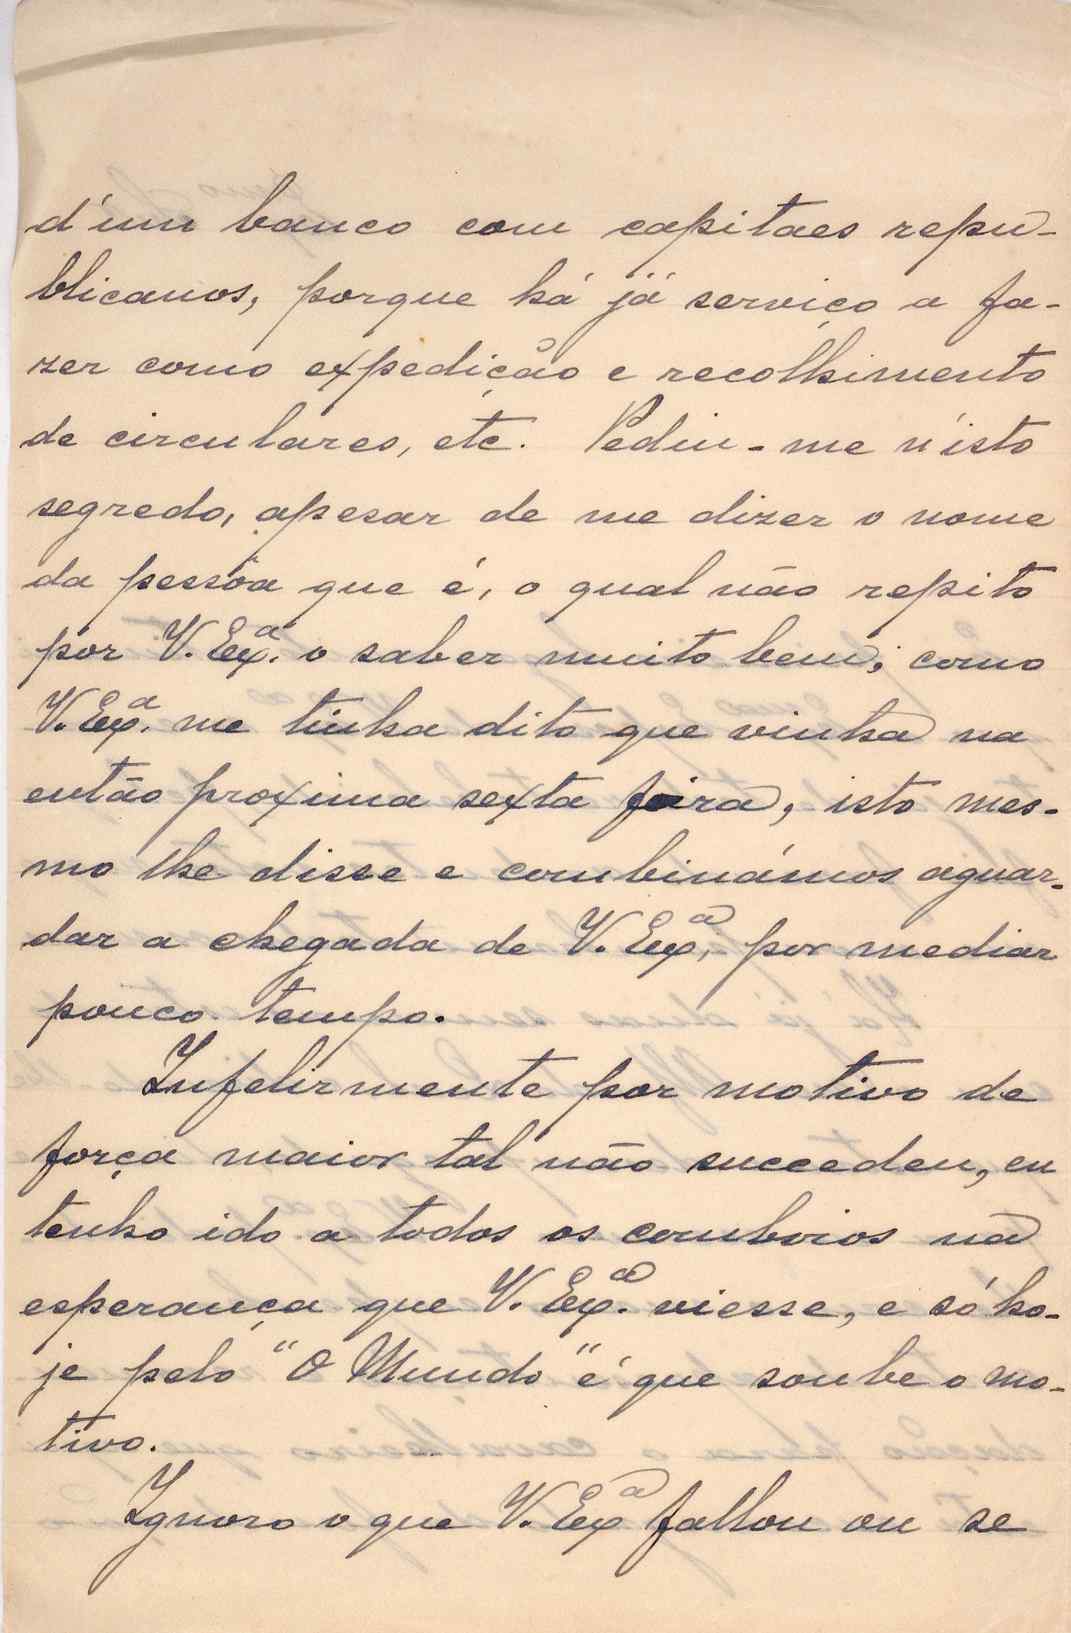 d'um banco com capitaes repu-
blicanos, porque há já serviço a fa-
zer como expedição e recolhimento
de circulares, etc. Pediu-me n'isto
segredo, apesar de me dizer o nome
da pessôa que é, o qual não repito
por V. Exª. o saber muito bem; como
V. Exª. me tinha dito que vinha na
então proxima sexta feira, isto mes-
mo lhe disse e combinámos aguar-
dar a chegada de V. Exª, por mediar
pouco tempo.
Infelizmente por motivo de
força maior tal não succedeu, eu
tenho ido a todos os comboios na
esperança que V. Exª. viesse, e só ho-
je pelo "O Mundo" é que soube o mo-
tivo.
Ignoro o que V. Exª fallou ou se